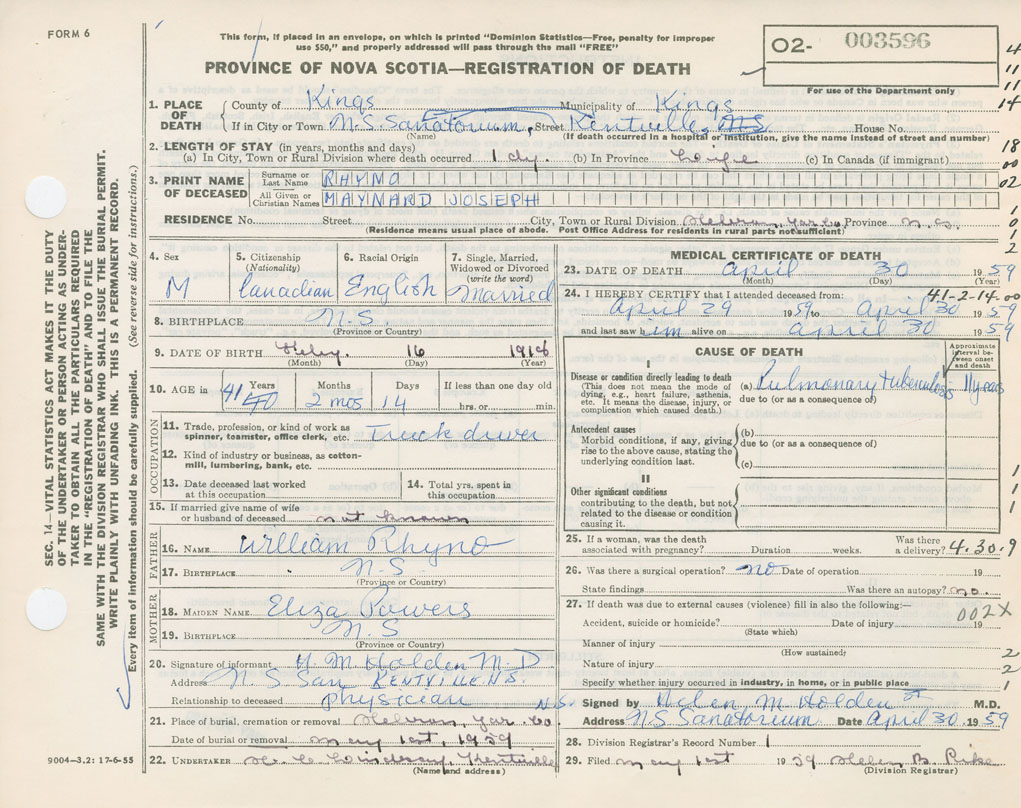 FORM 6
This form, if placed in an envelope, on which is printed "Dominion Statistics—Free, penalty for improper
use $50," and properly addressed will pass through the mail "FREE"
PROVINCE OF NOVA SCOTIA—REGISTRATION OF DEATH
02- 003596
For use of the Department only
4
11
11
14
18
00
02
1
0
1
2
SEC. 14—VITAL STATISTICS ACT MAKES IT THE DUTY
OF THE UNDERTAKER OR PERSON ACTING AS UNDER-
TAKER TO OBTAIN ALL THE PARTICULARS REQUIRED
IN THE "REGISTRATION OF DEATH" AND TO FILE THE
SAME WITH THE DIVISION REGISTRAR WHO SHALL ISSUE THE BURIAL PERMIT.
WRITE PLAINLY WITH UNFADING INK. THIS IS A PERMANENT RECORD.
Every item of information should be carefully supplied. (See reverse side for instructions.)
1. PLACE OF DEATH County of Kings Municipality of Kings
If in City or Town N.S. Sanatorium, Street Kentville, N.S. House No.
(Name) (If death occurred in a hospital or institution, give the name instead of street and number)
2. LENGTH OF STAY (in years, months and days)
(a) In City, Town or Rural Division where death occurred 1 dy. (b) In Province Life (c) In Canada (if immigrant)
3. PRINT NAME OF DECEASED Surname or Last Name RHYNO
All Given or Christian Names MAYNARD JOSEPH
RESIDENCE No. Street City, Town or Rural Division Hebron, Yar Co Province N.S.
(Residence means usual place of abode. Post Office Address for residents in rural parts not sufficient)
4. Sex M
5. Citizenship (Nationality) Canadian
6. Racial Origin English
7. Single, Married, Widowed or Divorced (write the word) Married
8. BIRTHPLACE N.S.
(Province or Country)
9. DATE OF BIRTH Feby. 16 1918
(Month) (Day) (Year)
10. AGE in Years 41 40 Months 2 mos Days 14 If less than one day old hrs. or min.
OCCUPATION
11. Trade, profession, or kind of work as spinner, teamster, office clerk, etc. Truck driver
12. Kind of industry or business, as cotton-mill, lumbering, bank, etc.
13. Date deceased last worked at this occupation
14. Total yrs. spent in this occupation
15. If married give name of wife or husband of deceased not known
FATHER
16. NAME William Rhyno
17. BIRTHPLACE N.S
(Province or Country)
MOTHER
18. MAIDEN NAME Eliza Powers
19. BIRTHPLACE N.S
(Province or Country)
20. Signature of informant H. M. Holden M.D
Address N.S San KENTVILLE N.S.
Relationship to deceased Physician
21. Place of burial, cremation or removal Hebron, Yar. Co. N.S.
Date of burial or removal May 1st, 1959
22. UNDERTAKER Kentville
(Name and address)
9004—3.2: 17-6-55
MEDICAL CERTIFICATE OF DEATH
23. DATE OF DEATH April 30 1959
(Month) (Day) (Year)
24. I HEREBY CERTIFY that I attended deceased from: 41-2-14-00
April 29 1959 to April 30 1959
and last saw him alive on April 30 1959
CAUSE OF DEATH
Approximate interval between onset and death
I
Disease or condition directly leading to death
(This does not mean the mode of dying, e.g., heart failure, asthenia, etc. It means the disease, injury, or complication which caused death.)
(a) Pulmonary tuberculosis 11 years
due to (or as a consequence of)
Antecedent causes
Morbid conditions, if any, giving rise to the above cause, stating the underlying condition last.
(b)
due to (or as a consequence of)
(c)
II
Other significant conditions
contributing to the death, but not related to the disease or condition causing it.
1
1
1
25. If a woman, was the death associated with pregnancy? Duration weeks. Was there a delivery? 4.30.9
26. Was there a surgical operation? no Date of operation 19
State findings Was there an autopsy? no.
27. If death was due to external causes (violence) fill in also the following:— 002X
Accident, suicide or homicide? Date of injury 19
(State which)
Manner of injury 2
(How sustained)
Nature of injury 2
Specify whether injury occurred in industry, in home, or in public place 1
Signed by Helen M Holden M.D.
Address N S Sanatorium Date April 30 1959
28. Division Registrar's Record Number 1
29. Filed May 1st 1959 Helen B. Pike
(Division Registrar)